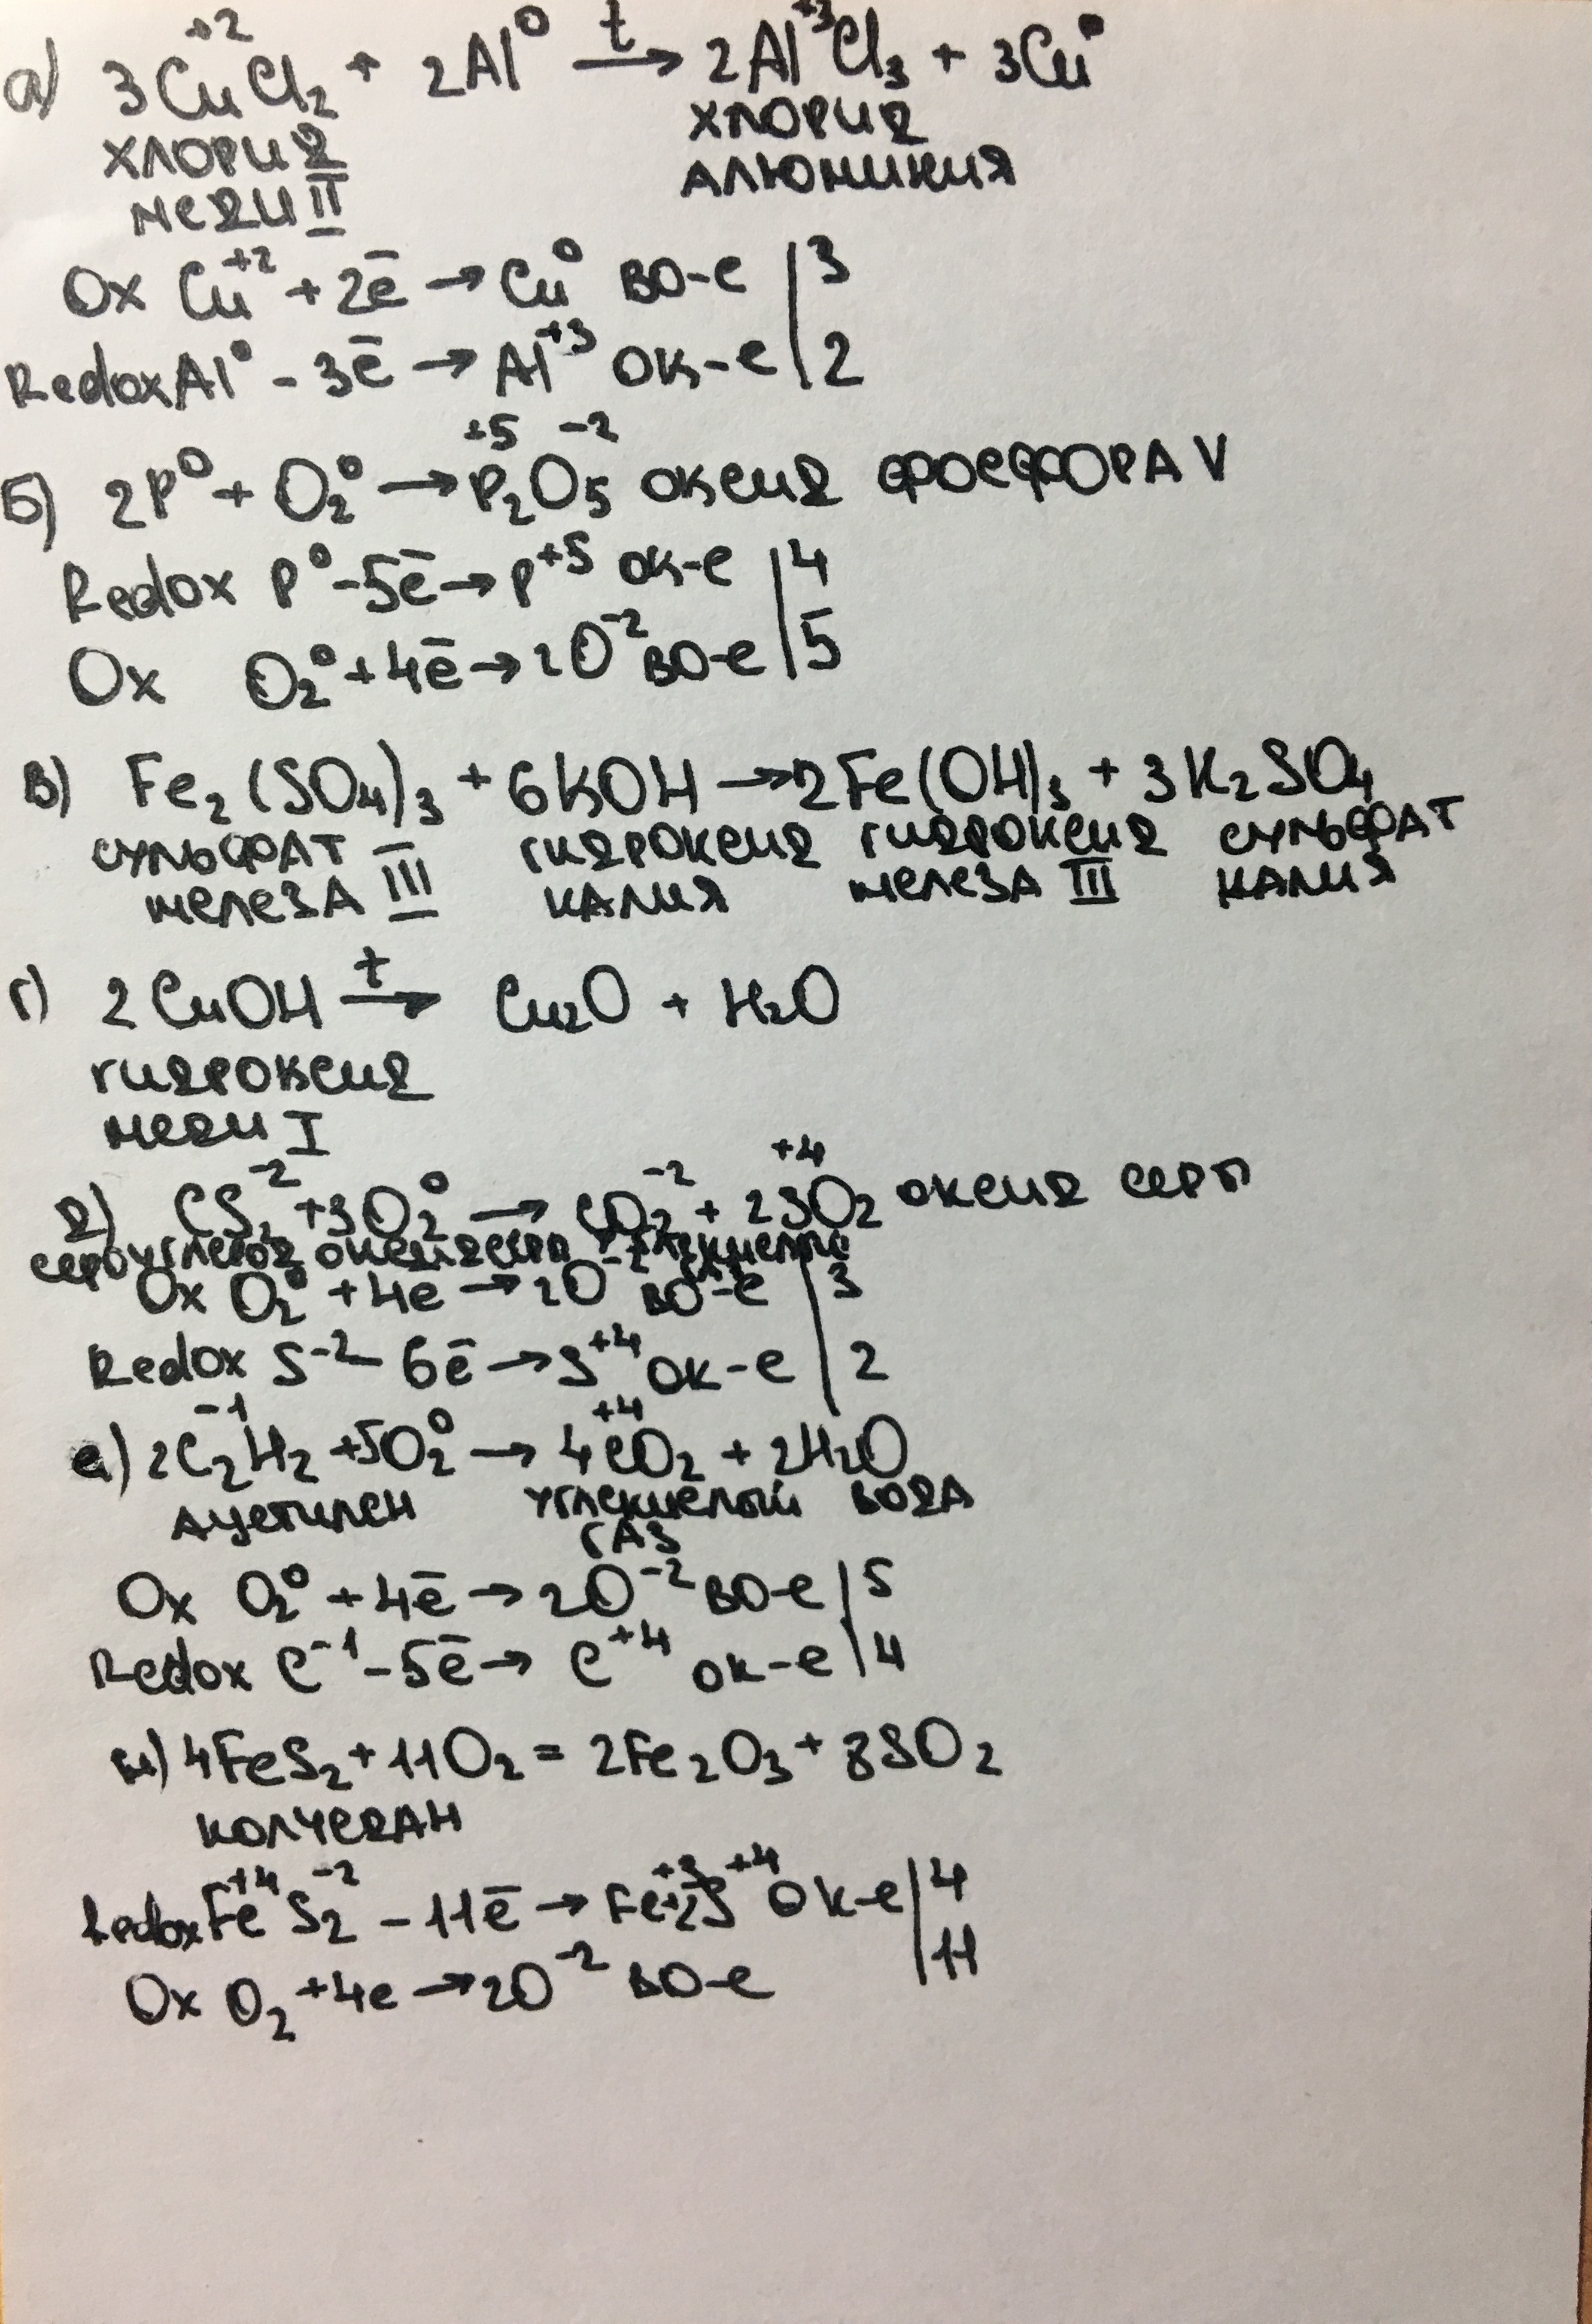 а) 3Cu⁺²Cl₂ + 2Al⁰ t→ 2Al⁺³Cl₃ + 3Cu⁰
хлорид хлорид
меди II алюминия
Ox Cu⁺² + 2ē → Cu⁰ во-е | 3
Redox Al⁰ - 3ē → Al⁺³ ок-е | 2
Б) 2P⁰ + O₂⁰ → P₂⁺⁵O₅⁻² оксид фосфора V
Redox P⁰ - 5ē → P⁺⁵ ок-е | 4
Ox O₂⁰ + 4ē → 2O⁻² во-е | 5
в) Fe₂(SO₄)₃ + 6KOH → 2Fe(OH)₃ + 3K₂SO₄
сульфат гидроксид гидроксид сульфат
железа III калия железа III калия
г) 2CuOH t→ Cu₂O + H₂O
гидроксид
меди I
д) CS₂⁻² + 3O₂⁰ → CO₂⁻² + 2S⁺⁴O₂ оксид серы
сероуглерод
Ox O₂⁰ + 4e → 2O⁻² во-е | 3
Redox S⁻² - 6ē → S⁺⁴ ок-е | 2
е) 2C₂⁻¹H₂ + 5O₂⁰ → 4C⁺⁴O₂ + 2H₂O
ацетилен углекислый вода
газ
Ox O₂⁰ + 4ē → 2O⁻² во-е | 5
Redox C⁻¹ - 5ē → C⁺⁴ ок-е | 4
ж) 4FeS₂ + 11O₂ = 2Fe₂O₃ + 8SO₂
колчедан
Redox Fe⁺⁴S₂⁻² - 11ē → Fe⁺³+2S⁺⁴ ок-е | 4
Ox O₂ + 4e → 2O⁻² во-е | 11